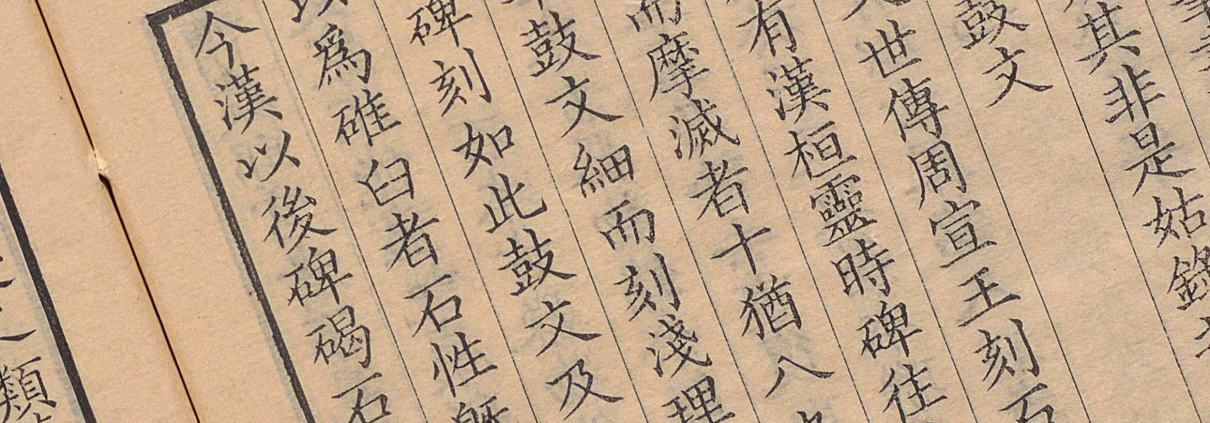 其非是姑錄
鼓文
世傳周宣王刻石
有漢桓靈時碑往
而摩滅者十猶八
鼓文細而刻淺理
碑刻如此鼓文及
以爲碓臼者石性
今漢以後碑碣石
類